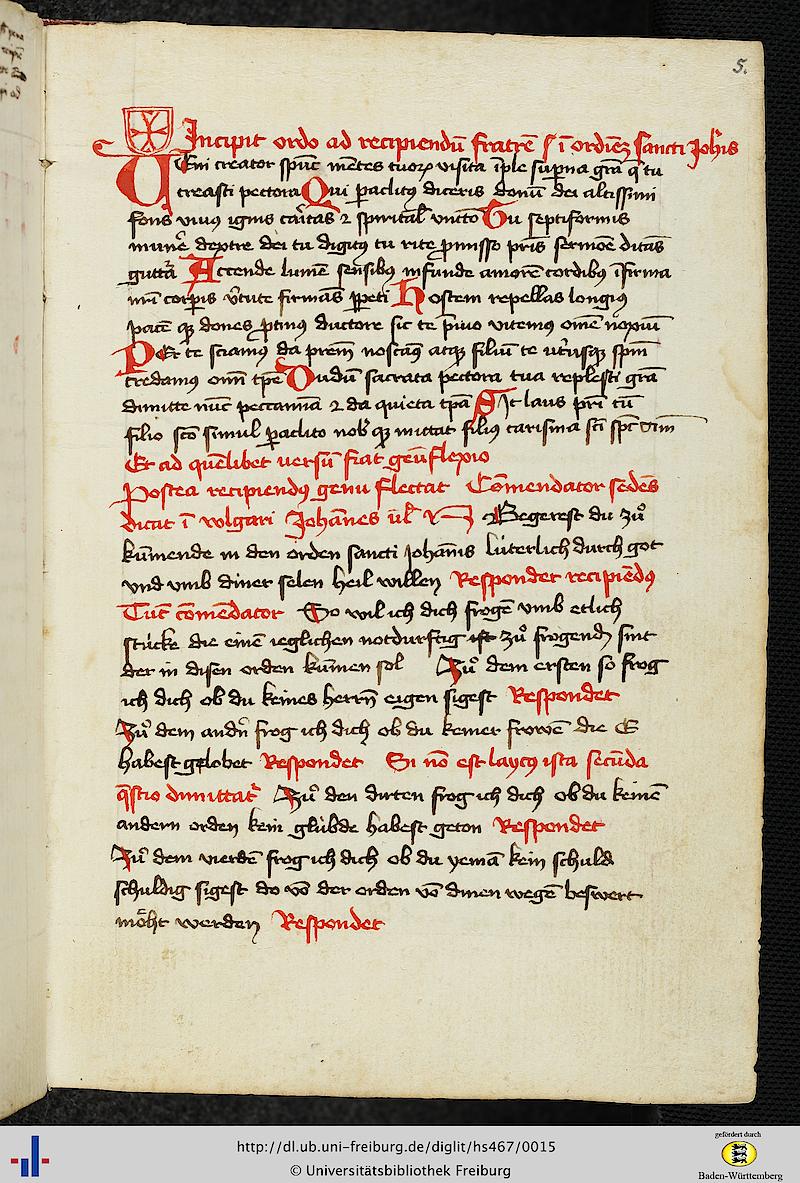 5.
Incipit ordo ad recipiendū fratrē ī ordinē sancti Joh̄is
Veni creator spūs mētes tuoꝝ visita īple supna grā q̄ tu
creasti pectora Qui paclitꝰ diceris donū dei altissimi
fons viuus ignis caritas ⁊ spiritał vnctio Tu septiformis
munē dextre dei tu digitꝰ tu rite pmisso pris sermōe ditās
guttā Accende lumē sensibꝰ infunde amorē cordibꝰ īfirma
nrī corpis v̄tute firmās ppeti Hostem repellas longiꝰ
pacē qꝫ dones ptinꝰ ductore sic te puio vitemus om̄e noxiū
Per te sciamus da prem noscamꝰ atqꝫ filiū te vtriusqꝫ spm̄
credamus omi tpe Dudū sacrata pectora tua replesti grā
dimitte nūc peccamīa ⁊ da quieta tpa Sit laus pri cū
filio sco simul paclito nobꝭ qꝫ mittat filiꝰ carisma sci spc
Et ad quēlibet uersū fiat genuflexio
Postea recipiendꝰ genu flectat Cōmendator sedēs
dicat ī volgari Johānes ūł N Begerest du zuͦ
kūmende in den orden sancti johānis luterlich durch got
vnd vmb diner selen heil willen Respondet recipiēdꝰ
Tūc cōmēdator So wil ich dich frogē vmb etlich
stúcke die einē ieglichen notdurftig ist zuͦ frogend sint
der in disen orden kūmen sol Zuͦ dem ersten so frog
ich dich ob du keines herrn eigen sigest Respondet
Zuͦ dem andn̄ frog ich dich ob du keiner frowē die E
habest gelobet Respondet Si nō est laycꝰ ista secūda
q̄stio dimittat͛ Zuͦ den dirten frog ich dich ob du keinē
andern orden kein glúbde habest geton Respondet
Zuͦ dem vierdē frog ich dich ob du yemā kein schuld
schuldig sigest do vō der orden vō dinen wegē beswert
moͤht werden Respondet
http://dl.ub.uni-freiburg.de/diglit/hs467/0015
© Universitätsbibliothek Freiburg
gefördert durch
Baden-Württemberg